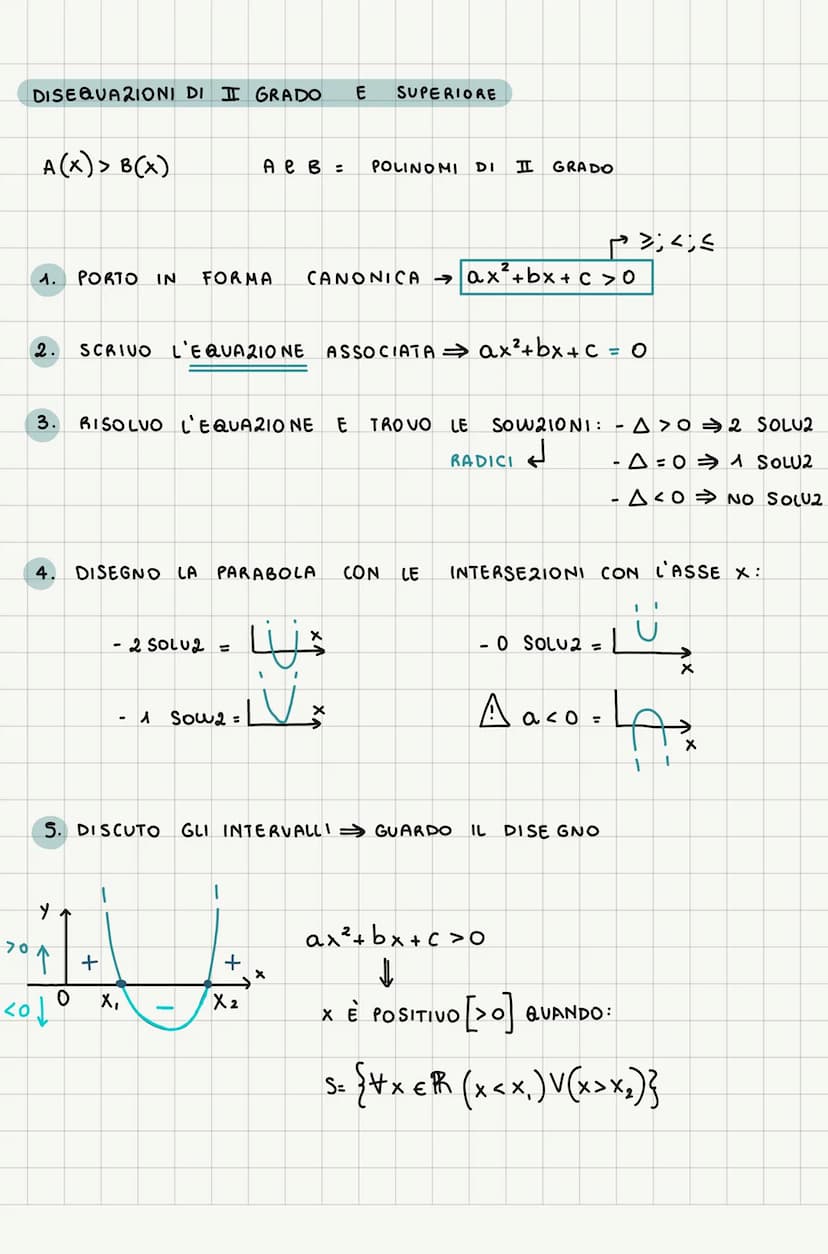 DISEQUAZIONI DI II GRADO E SUPERIORE
A(x) > B(x) A e B = POLINOMI DI II GRADO
≥; <; ≤
1. PORTO IN FORMA CANONICA → ax²+bx+c >0
2. SCRIVO L'EQUAZIONE ASSOCIATA ⇒ ax²+bx+c = 0
3. RISOLVO L'EQUAZIONE E TROVO LE SOLUZIONI: - Δ>0 ⇒ 2 SOLUZ
RADICI - Δ=0 ⇒ 1 SOLUZ
- Δ<0 ⇒ NO SOLUZ
4. DISEGNO LA PARABOLA CON LE INTERSEZIONI CON L'ASSE X:
- 2 SOLUZ = x - 0 SOLUZ = x
- 1 SOLUZ = x ! a<0 = x
5. DISCUTO GLI INTERVALLI ⇒ GUARDO IL DISEGNO
y
>0 ↑ + + x
<0 ↓ 0 x₁ − x₂
ax²+bx+c >0
⇓
x È POSITIVO [>0] QUANDO:
S= {∀x ∈ ℝ (x<x₁)∨(x>x₂)}